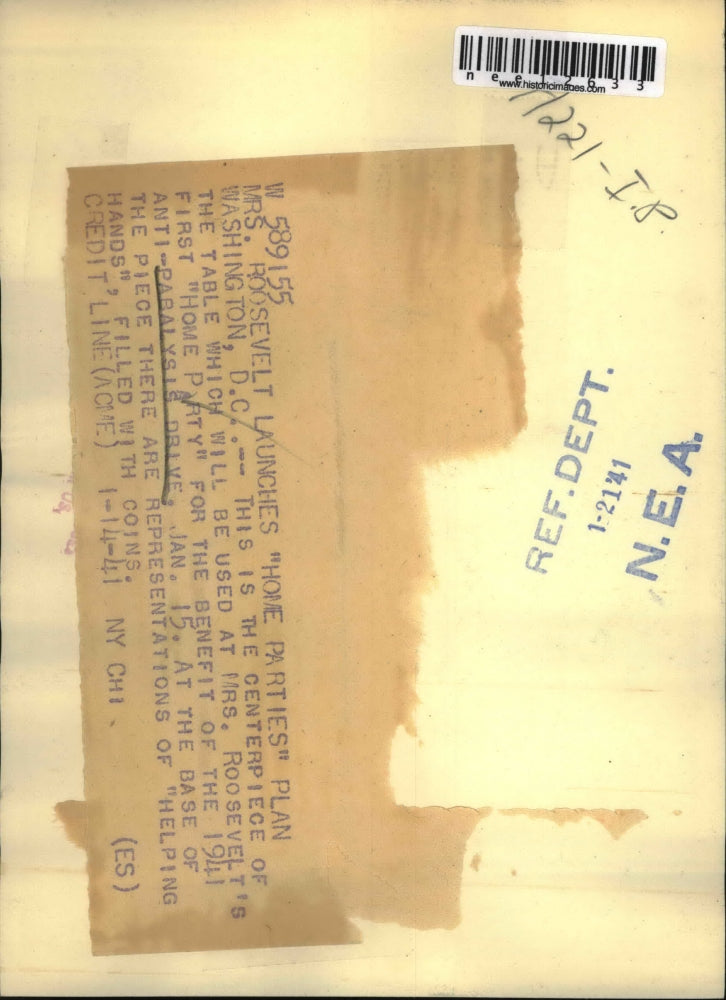 n e e 1 2 6 3 3
www.historicimages.com
1/221-I.P.
REF. DEPT.
1-21 41
N.E.A.
W 589155
MRS. ROOSEVELT LAUNCHES "HOME PARTIES" PLAN
WASHINGTON, D.C. .-- THIS IS THE CENTERPIECE OF
THE TABLE WHICH WILL BE USED AT MRS. ROOSEVELT'S
FIRST "HOME PARTY" FOR THE BENEFIT OF THE 1941
ANTI-PARALYSIS DRIVE, JAN. 15. AT THE BASE OF
THE PIECE THERE ARE REPRESENTATIONS OF "HELPING
HANDS", FILLED WITH COINS.
CREDIT LINE (ACME) 1-14-41 NY CHI (ES)